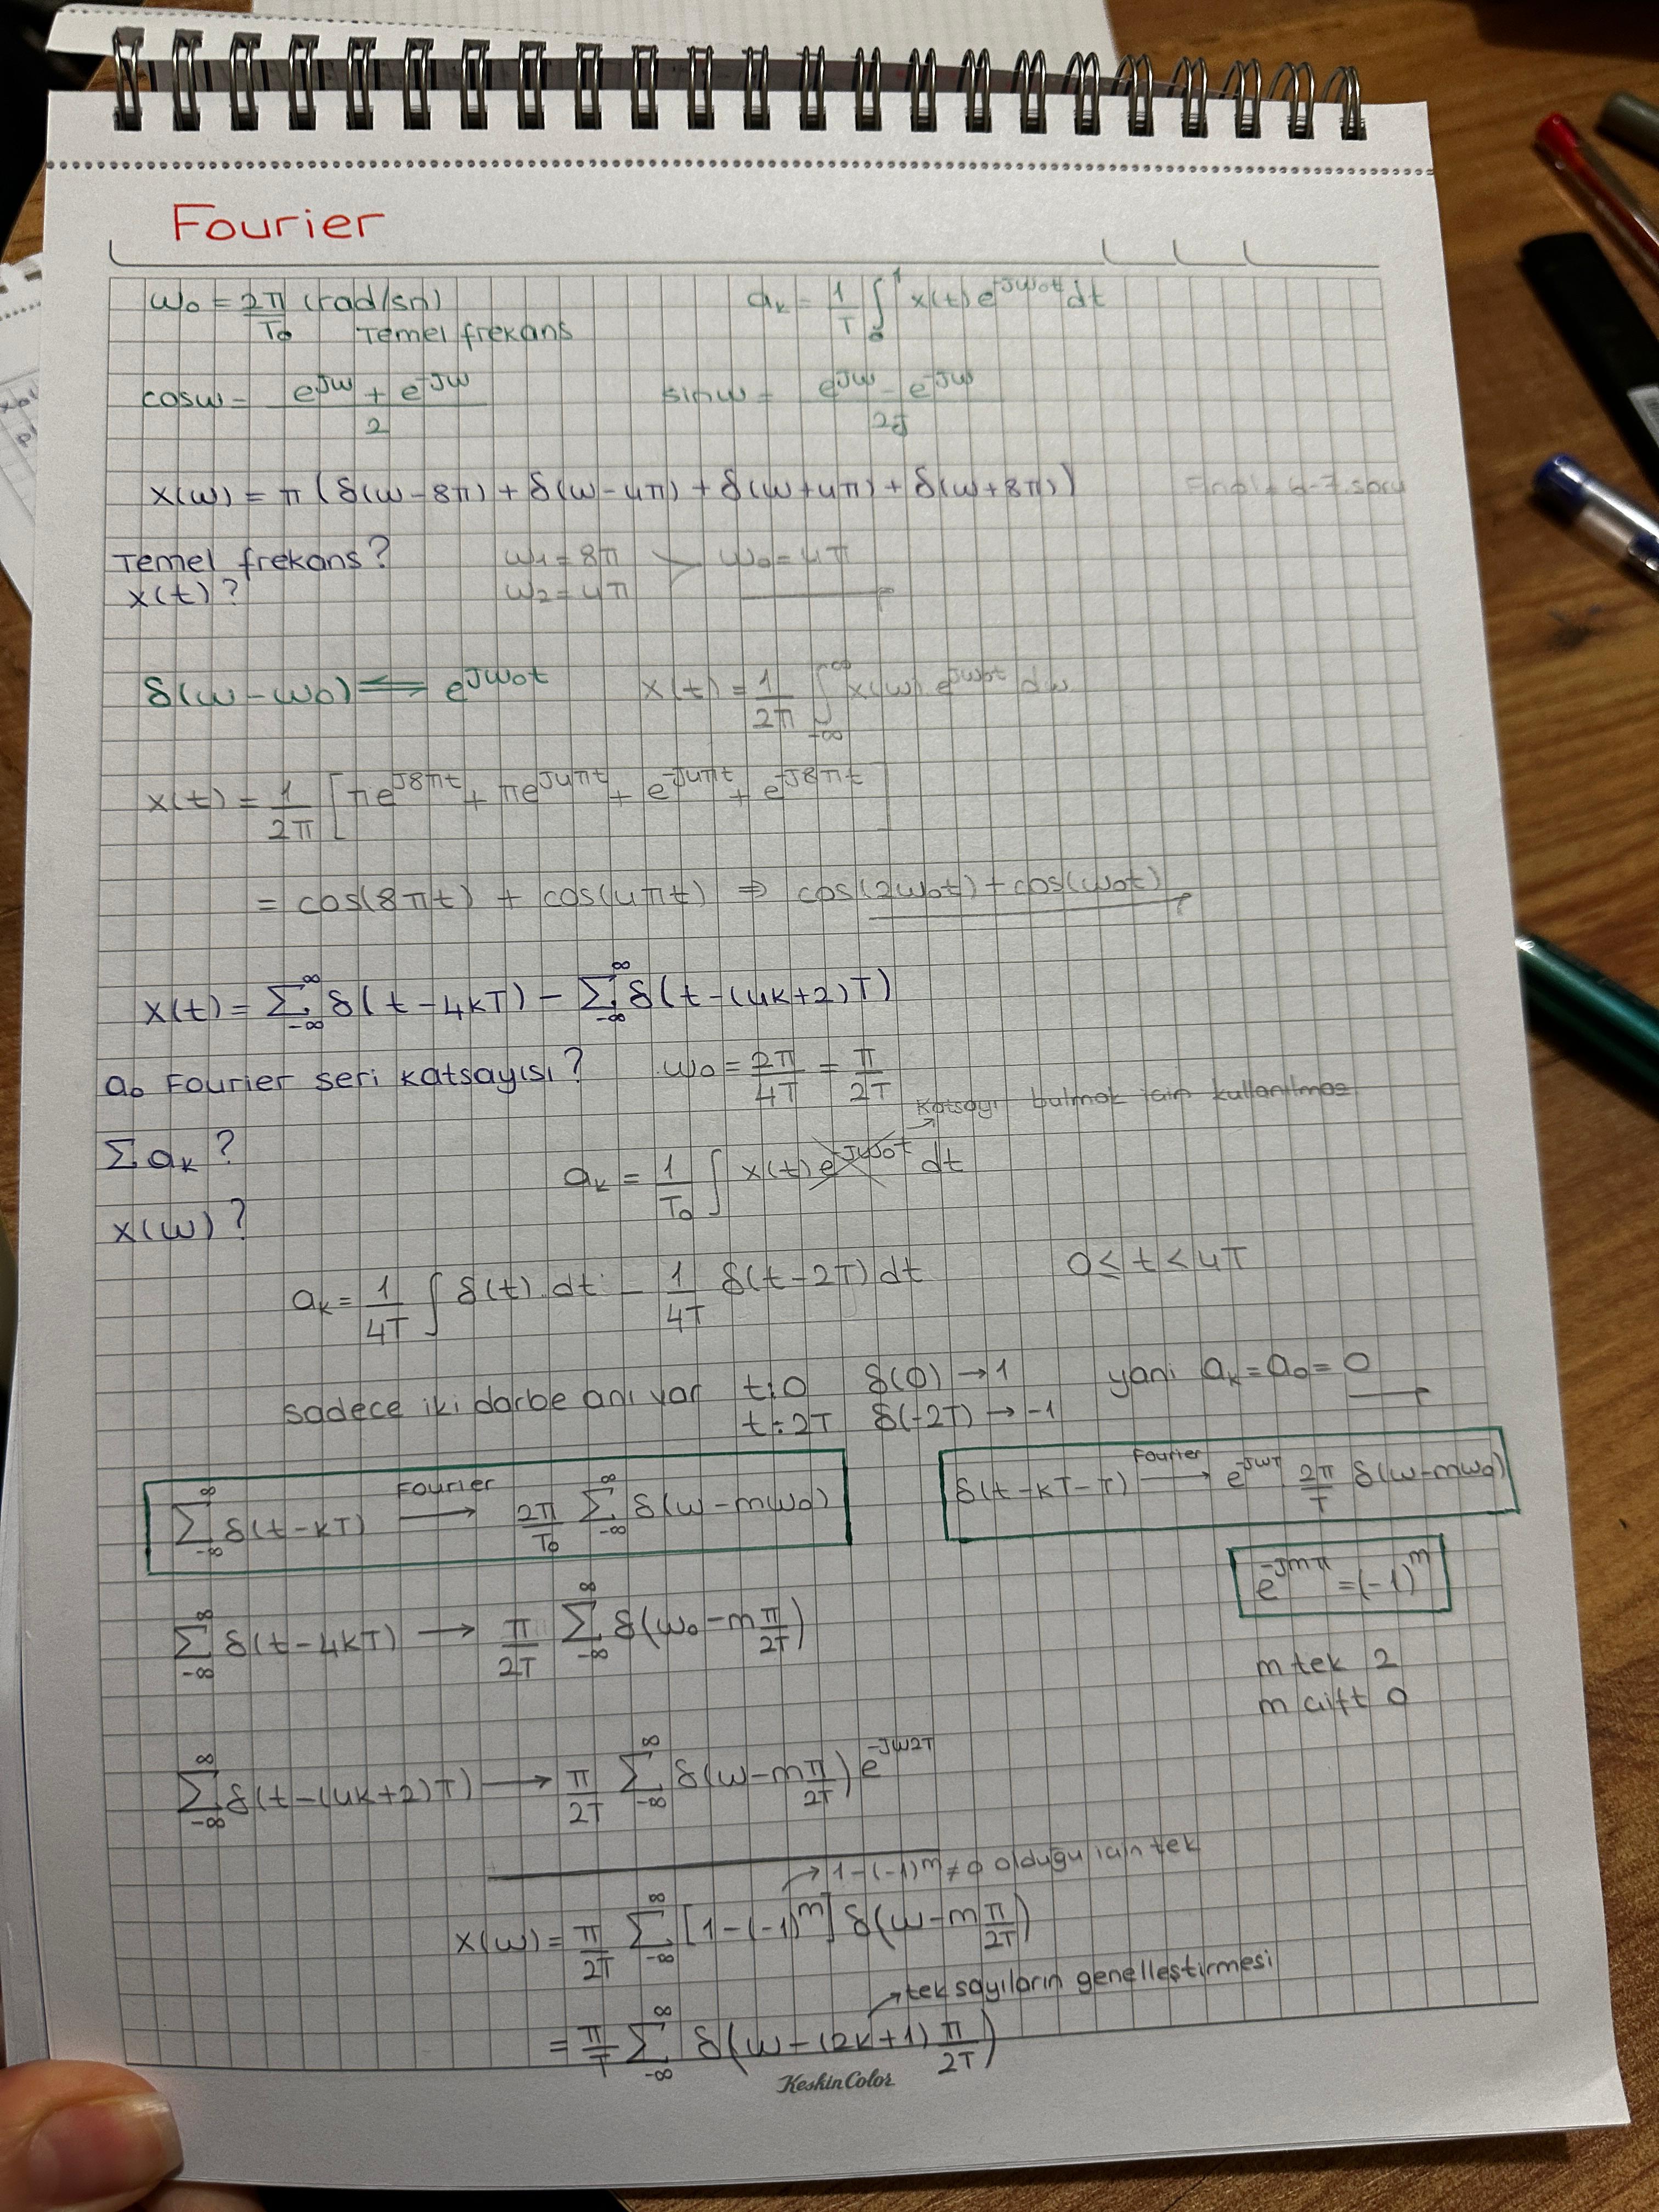 Fourier
ω₀ = 2π/T₀ (rad/sn) Temel frekans
aₖ = 1/T ∫ x(t) e^-jω₀t dt
cosω = (e^jω + e^-jω)/2
sinω = (e^jω - e^-jω)/2j
x(ω) = π (δ(ω-8π) + δ(ω-4π) + δ(ω+4π) + δ(ω+8π))
Final 6-7. soru
Temel frekans? ω₁ = 8π ω₂ = 4π > ω₀ = 4π
x(t)?
δ(ω-ω₀) ⟺ e^jω₀t
x(t) = 1/2π ∫_-∞^∞ x(ω) e^jω₀t dω
x(t) = 1/2π [πe^j8πt + πe^j4πt + e^-j4πt + e^-j8πt]
= cos(8πt) + cos(4πt) ⇒ cos(2ω₀t) + cos(ω₀t)
x(t) = Σ_-∞^∞ δ(t-4kT) - Σ_-∞^∞ δ(t-(4k+2)T)
a₀ Fourier seri katsayısı? ω₀ = 2π/4T = π/2T
Katsayı bulmak için kullanılmaz
Σ aₖ?
aₖ = 1/T₀ ∫ x(t) e^-jω₀t dt
x(ω)?
aₖ = 1/4T ∫ δ(t) dt - 1/4T δ(t-2T) dt 0 ≤ t < 4T
sadece iki darbe anı var t:0 δ(0) → 1 yani aₖ = a₀ = 0
t:2T δ(-2T) → -1
Σ_-∞^∞ δ(t-kT) Fourier → 2π/T₀ Σ_-∞^∞ δ(ω-mω₀)
δ(t-kT-T) Fourier → e^-jωT 2π/T δ(ω-mω₀)
e^-jmπ = (-1)^m
Σ_-∞^∞ δ(t-4kT) → π/2T Σ_-∞^∞ δ(ω₀-mπ/2T)
m tek 2
m çift 0
Σ_-∞^∞ δ(t-(4k+2)T) → π/2T Σ_-∞^∞ δ(ω-mπ/2T) e^-jω2T
→ 1-(-1)^m ≠ 0 olduğu için tek
x(ω) = π/2T Σ_-∞^∞ [1-(-1)^m] δ(ω-mπ/2T)
→ tek sayıların genelleştirmesi
= π/T Σ_-∞^∞ δ(ω-(2k+1)π/2T)
KeskinColor